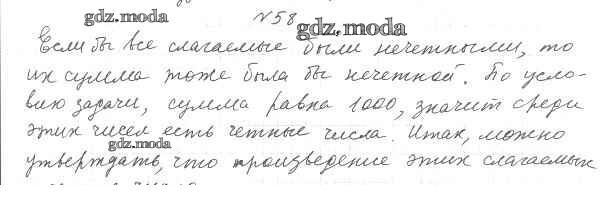 №58
gdz.moda gdz.moda
Если бы все слагаемые были нечетными, то
их сумма тоже была бы нечетной. По усло-
вию задачи, сумма равна 1000, значит среди
этих чисел есть четные числа. Итак, можно
gdz.moda
утверждать, что произведение этих слагаемых